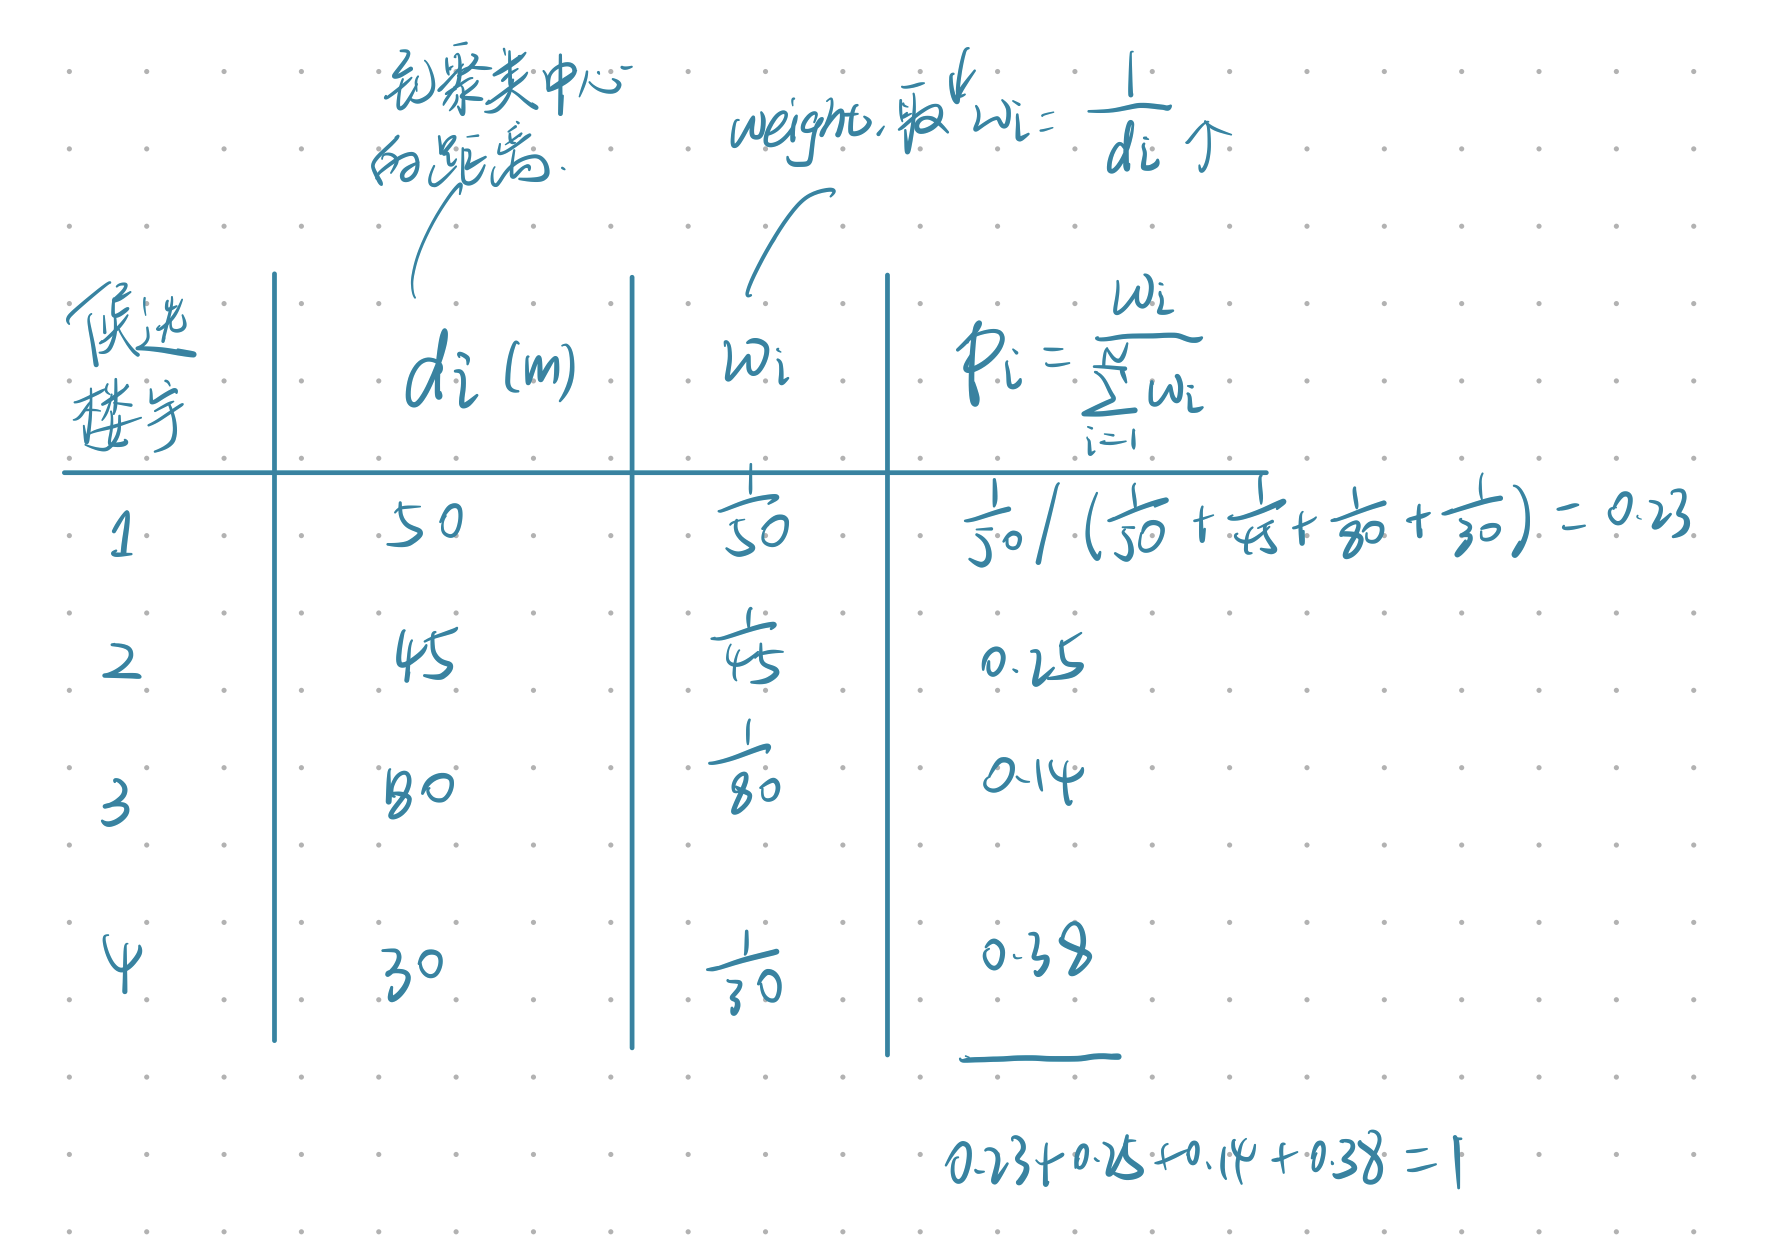 到聚类中心
的距离.
weight, 取 ↓ wi = 1/di ↑
候选
楼宇
di (m)
wi
pi = wi / ∑_{i=1}^{N} wi
1 50 1/50 1/50 / (1/50 + 1/45 + 1/80 + 1/30) = 0.23
2 45 1/45 0.25
3 80 1/80 0.14
4 30 1/30 0.38
0.23+0.25+0.14+0.38=1